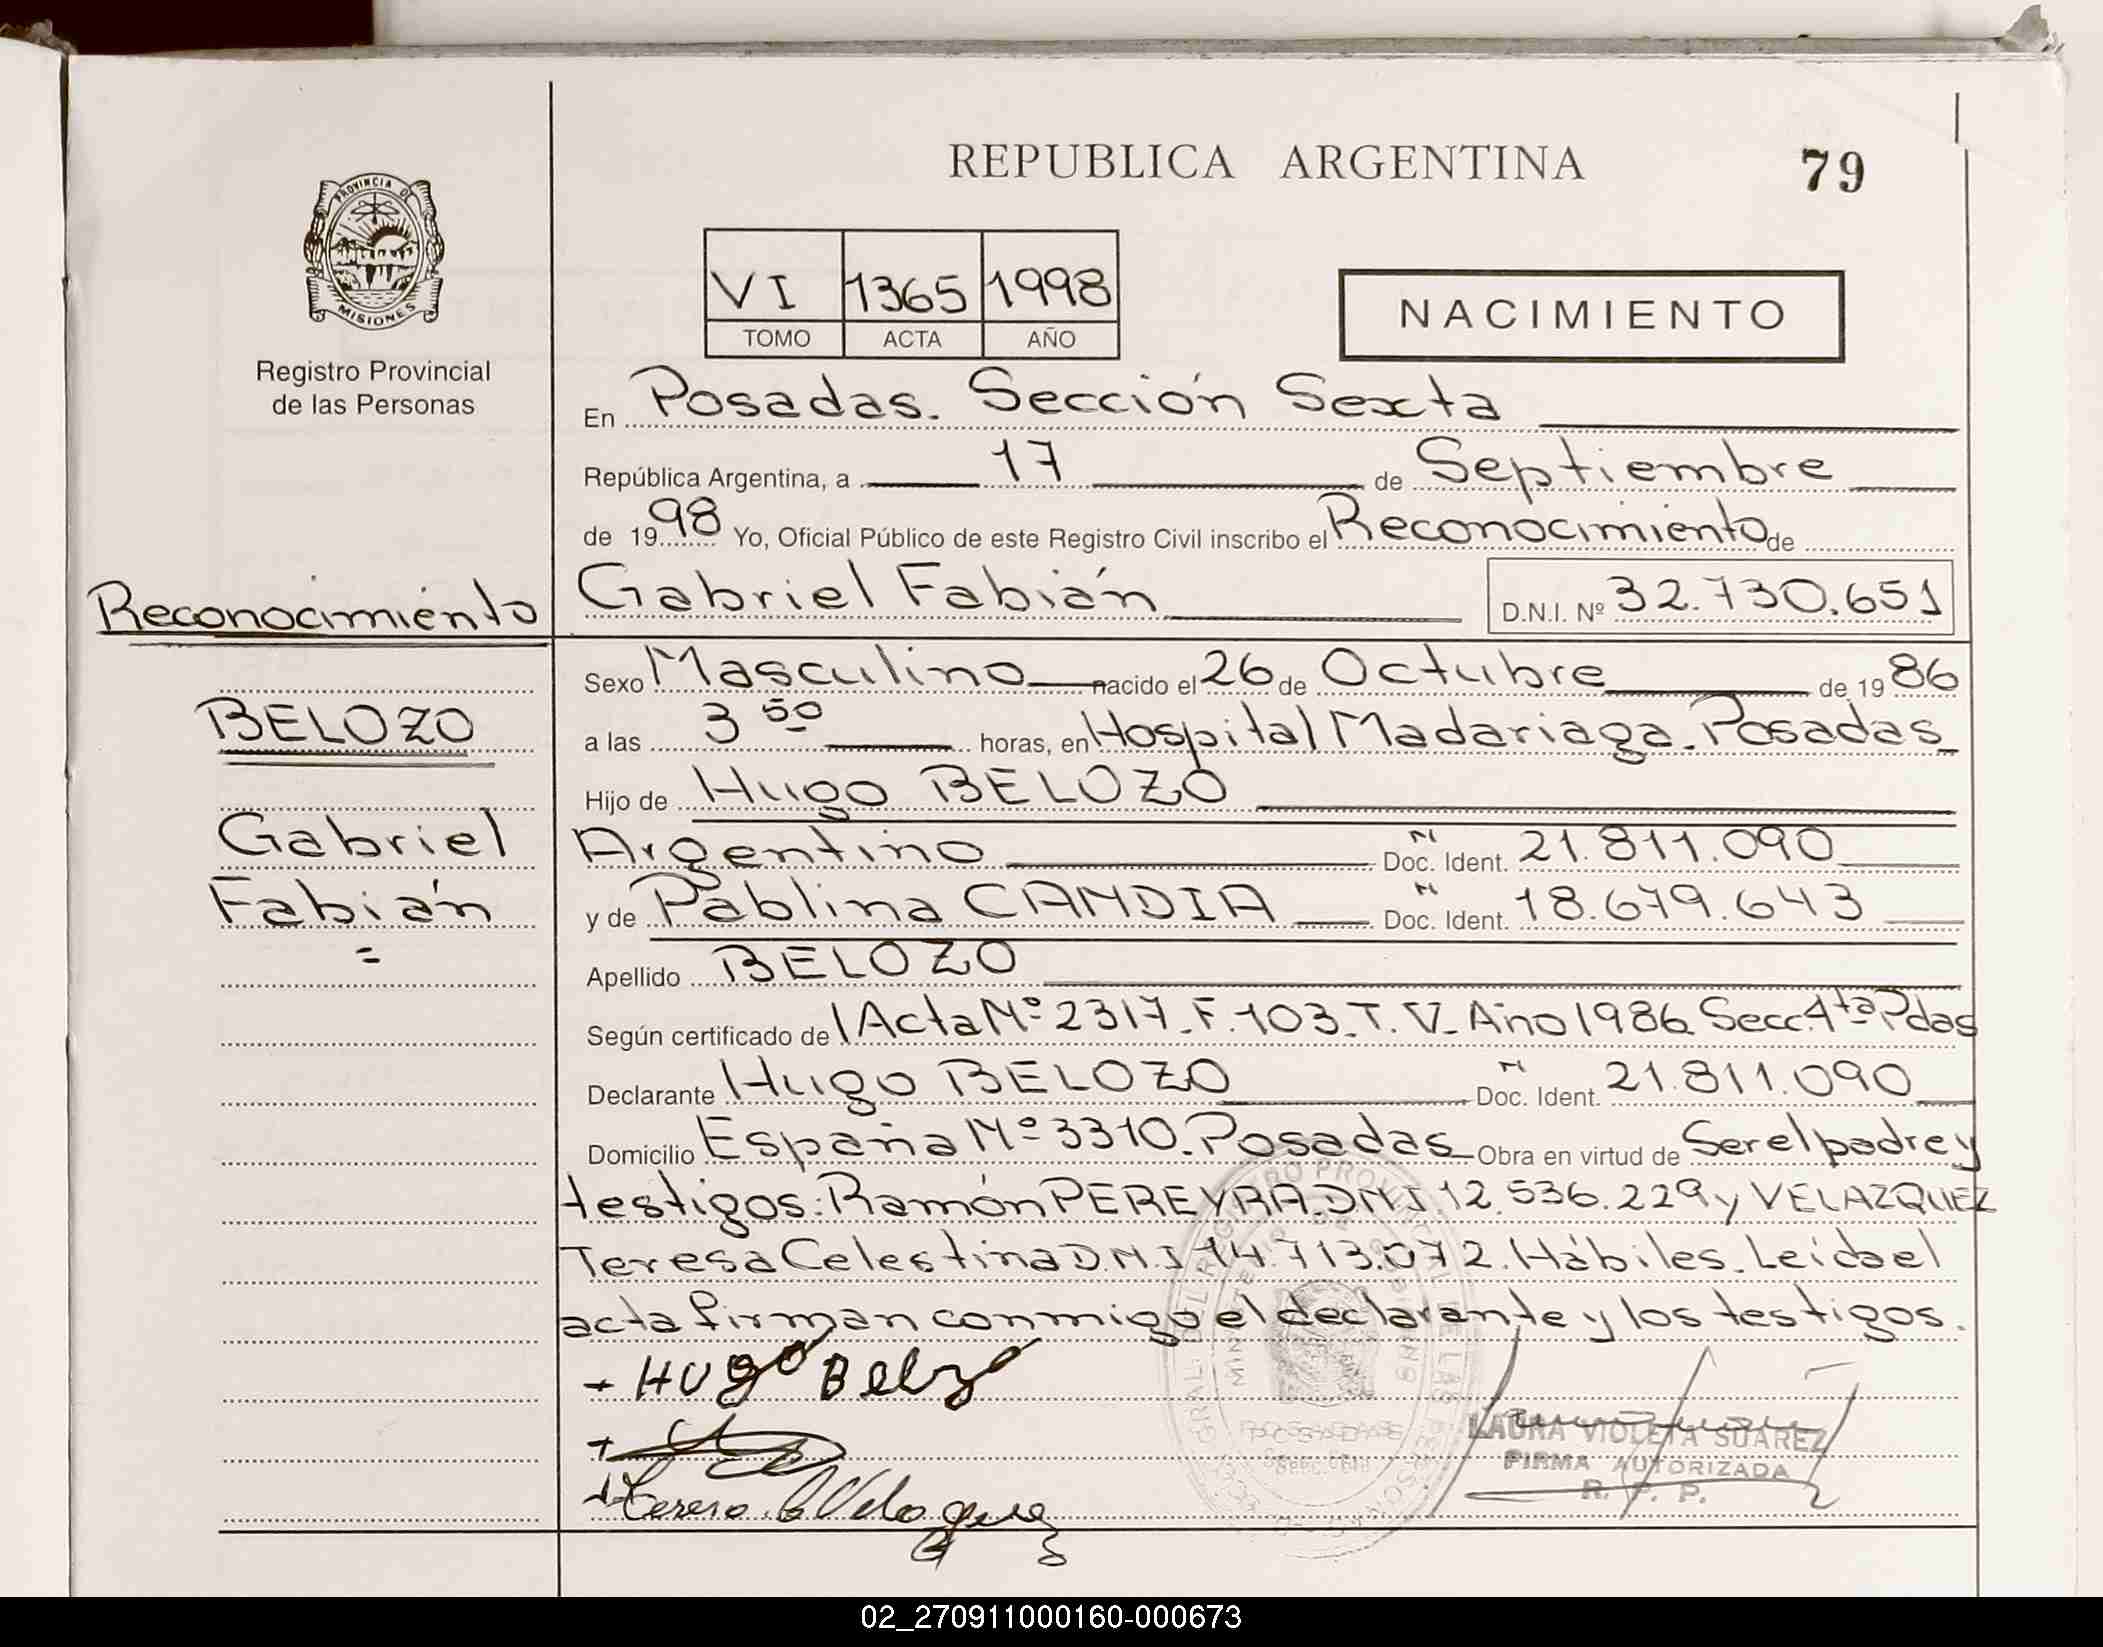 REPUBLICA ARGENTINA
79
PROVINCIA DE
MISIONES
Registro Provincial
de las Personas
VI 1365 1998
TOMO ACTA AÑO
NACIMIENTO
En Posadas. Sección Sexta
República Argentina, a 17 de Septiembre
de 1998 Yo, Oficial Público de este Registro Civil inscribo el Reconocimiento de
Gabriel Fabián D.N.I. Nº 32.730.651
Reconocimiento
BELOZO
Gabriel
Fabián
=
Sexo Masculino nacido el 26 de Octubre de 1986
a las 3 50 horas, en Hospital Madariaga. Posadas
Hijo de Hugo BELOZO
Argentino N Doc. Ident. 21.811.090
y de Pablina CANDIA N Doc. Ident. 18.679.643
Apellido BELOZO
Según certificado de Acta Nº 2317. F. 103. T. V. Año 1986 Secc. 4ta Pdas
Declarante Hugo BELOZO N Doc. Ident. 21.811.090
Domicilio España Nº 3310. Posadas Obra en virtud de Ser el padre y
testigos: Ramón PEREYRA. D.N.I. 12.536.229 y VELAZQUEZ
Teresa Celestina D.N.I. 14.713.072. Hábiles. Leída el
acta firman conmigo el declarante y los testigos.
Hugo Belozo
Teresa C Velazquez
LAURA VIOLETA SUAREZ
FIRMA AUTORIZADA
R. P. P.
02_270911000160-000673